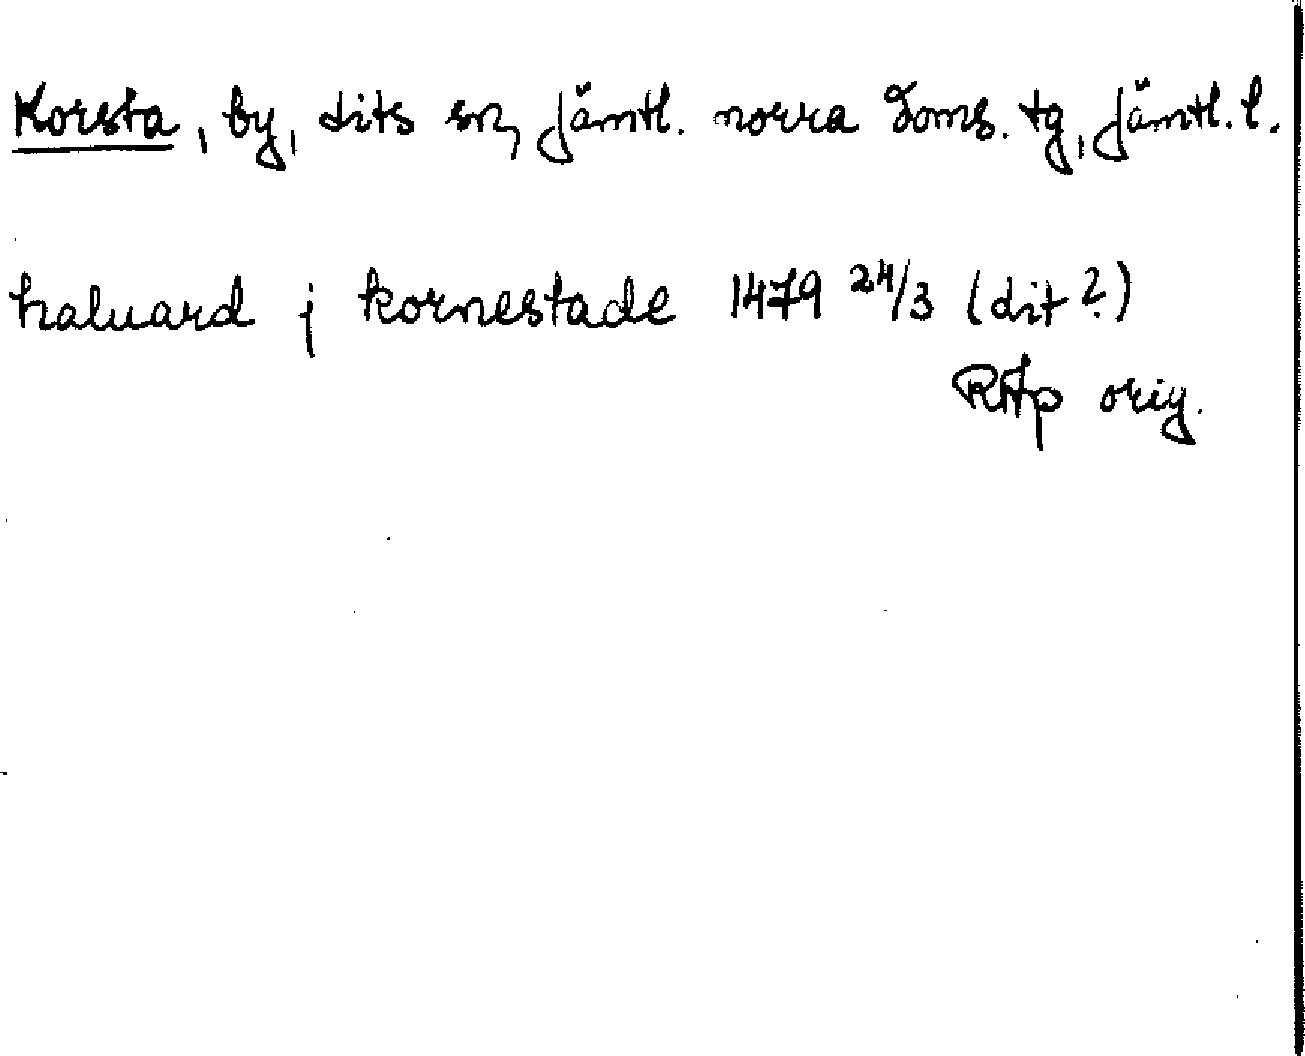 Korsta, by, Lits sn, Jämtl. norra Doms. tg, Jämtl. l.
haluard j kornestade 1479 24/3 (dit?)
RAp orig.